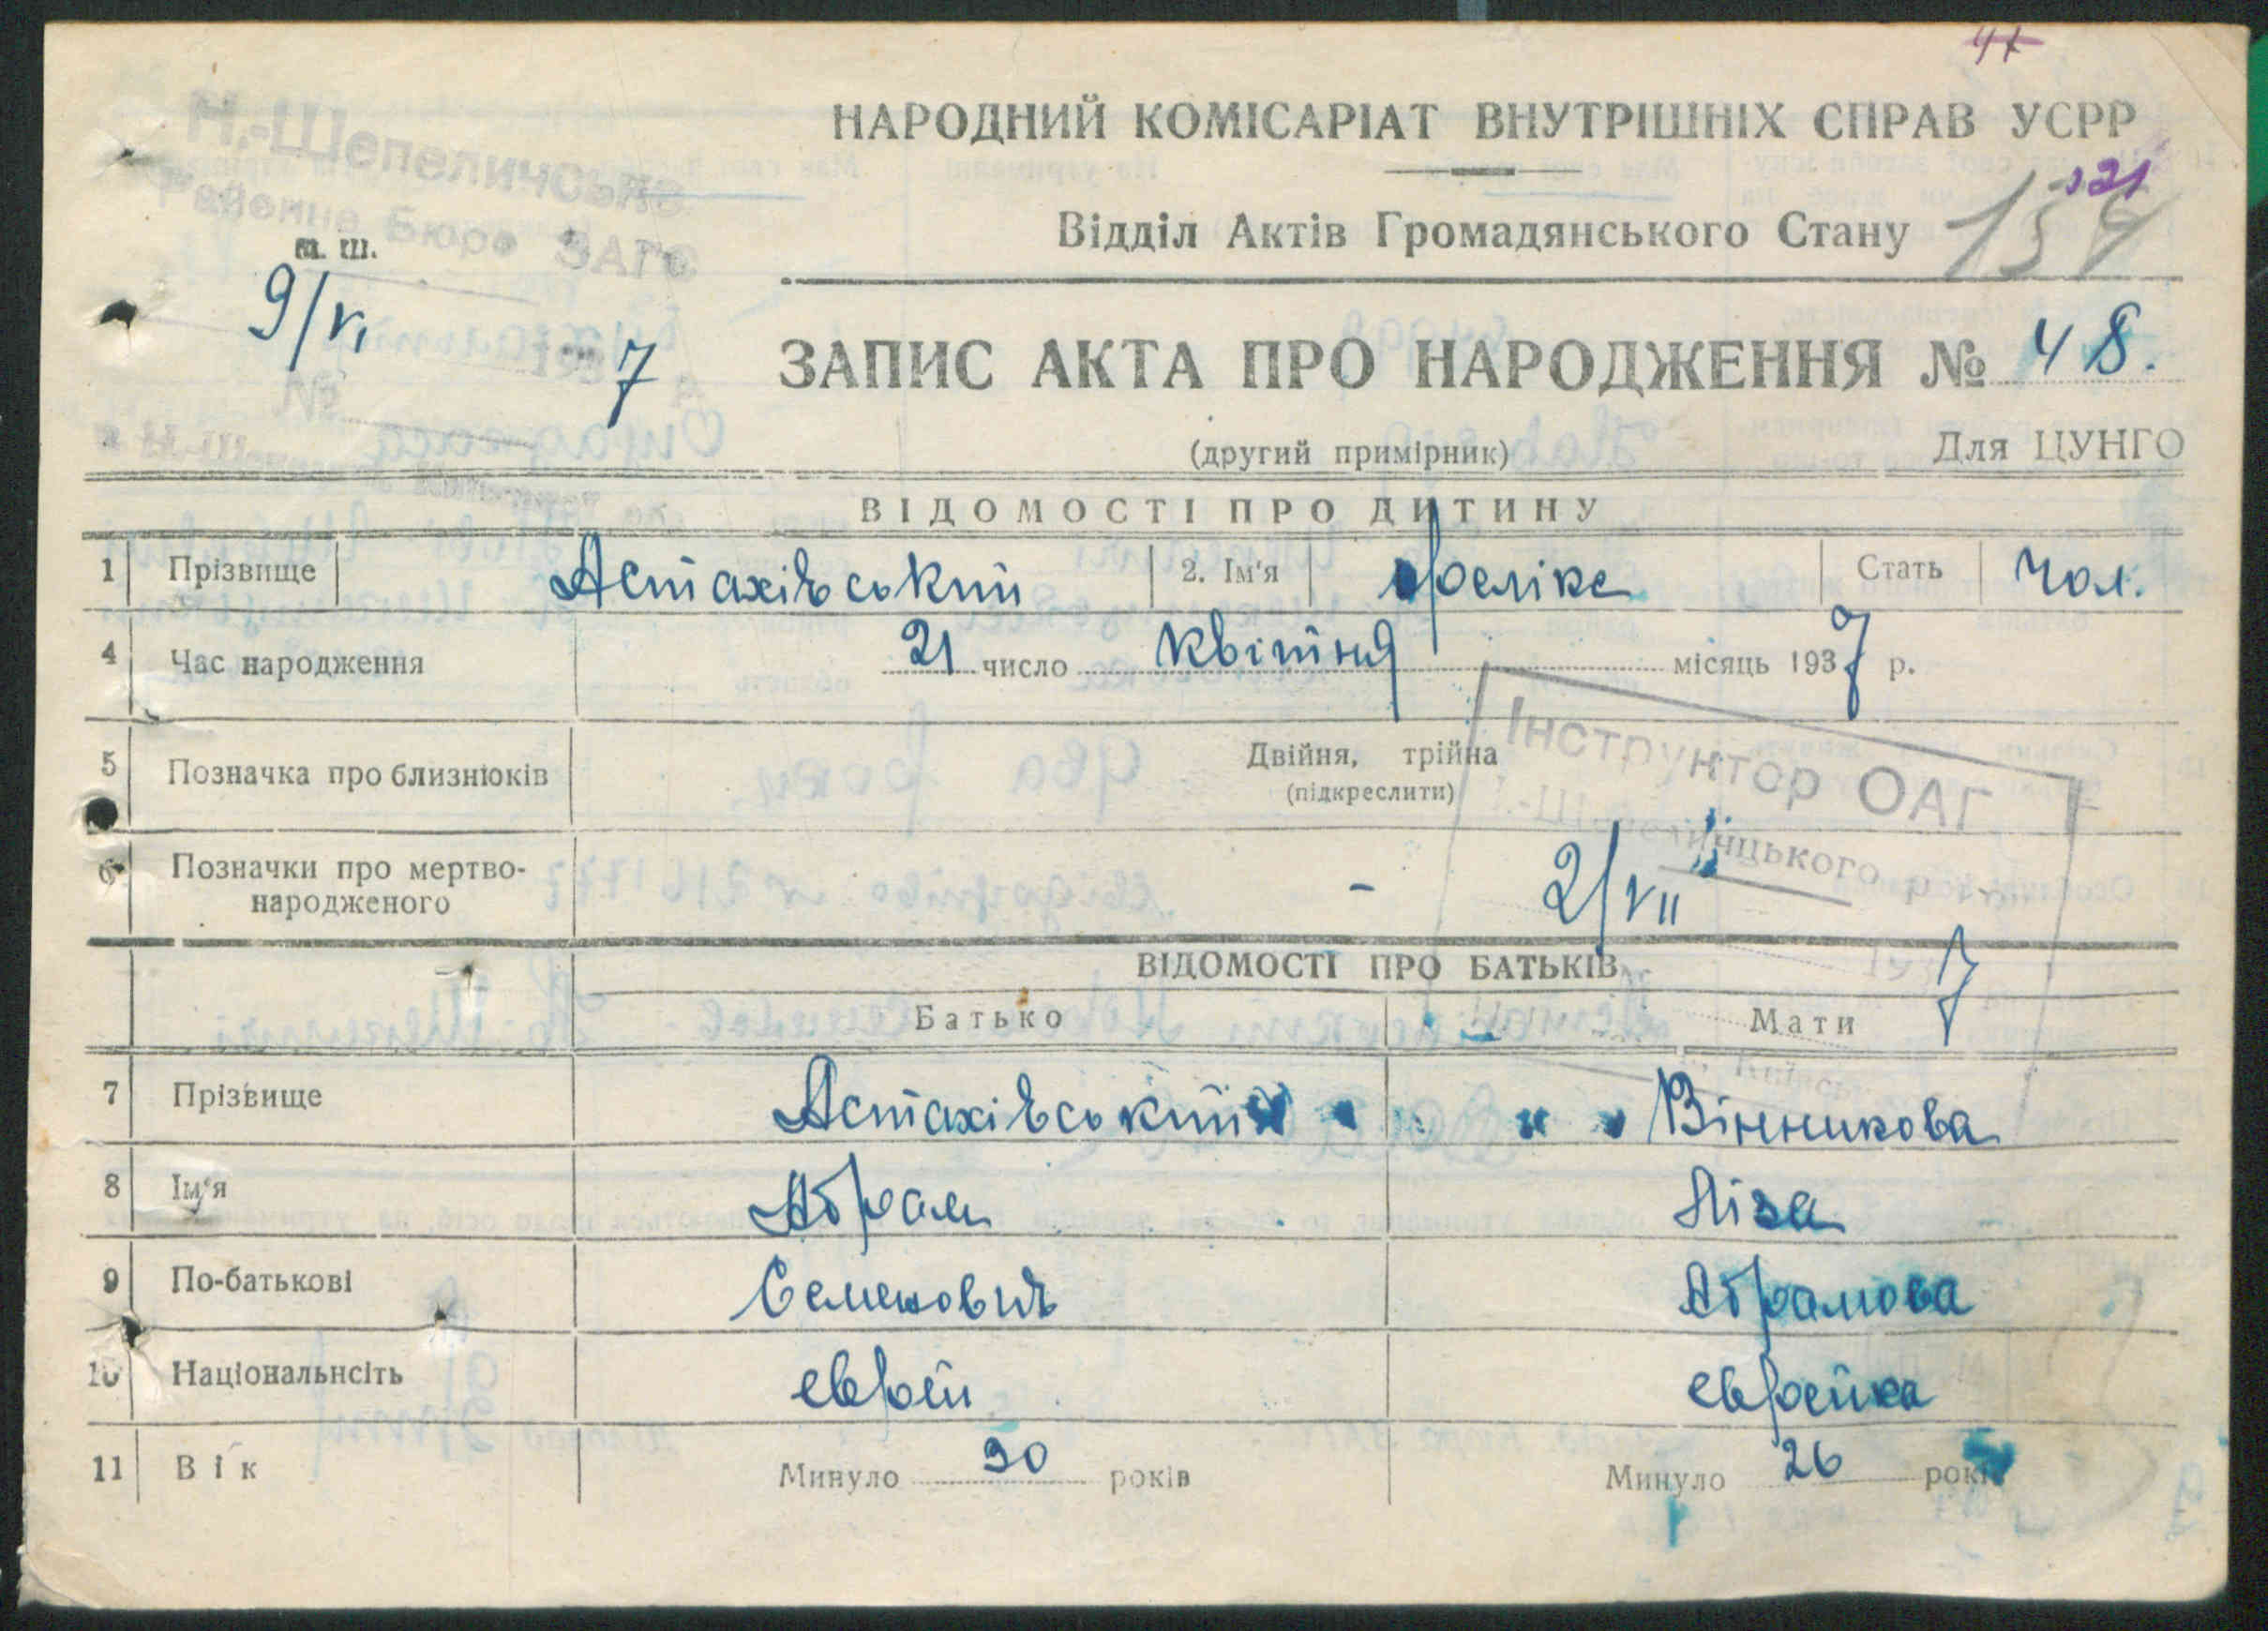 47
Н.-Шепеличське
Районне Бюро ЗАГС
м. ш.
9/VI
7
№
НАРОДНИЙ КОМІСАРІАТ ВНУТРІШНІХ СПРАВ УСРР
121
Відділ Актів Громадянського Стану
ЗАПИС АКТА ПРО НАРОДЖЕННЯ № 48.
(другий примірник) Для ЦУНГО
ВІДОМОСТІ ПРО ДИТИНУ
1 Прізвище Астахівський 2. Ім'я Фелікс Стать Чол.
4 Час народження 21 число Квітня місяць 1937 р.
5 Позначка про близнюків Двійня, трійна
(підкреслити)
Інструктор ОАГ
6 Позначки про мертво-
народженого - 2/VII
7
ВІДОМОСТІ ПРО БАТЬКІВ
Батько Мати
7 Прізвище Астахівський Вінникова
8 Ім'я Абрам Ліза
9 По-батькові Семенович Абрамова
10 Національнсіть еврей еврейка
11 Вік Минуло 30 років Минуло 26 років